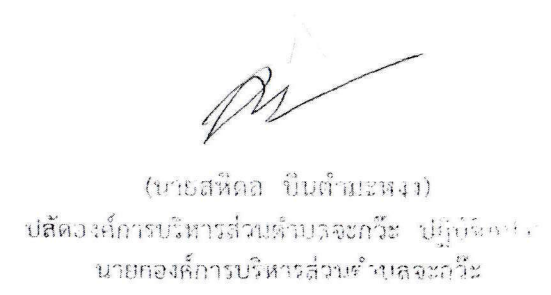 (นายสหีดล บินตำมะหงง)
ปลัดองค์การบริหารส่วนตำบลจะกว๊ะ ปฏิบัติหน้าที่
นายกองค์การบริหารส่วนตำบลจะกว๊ะ